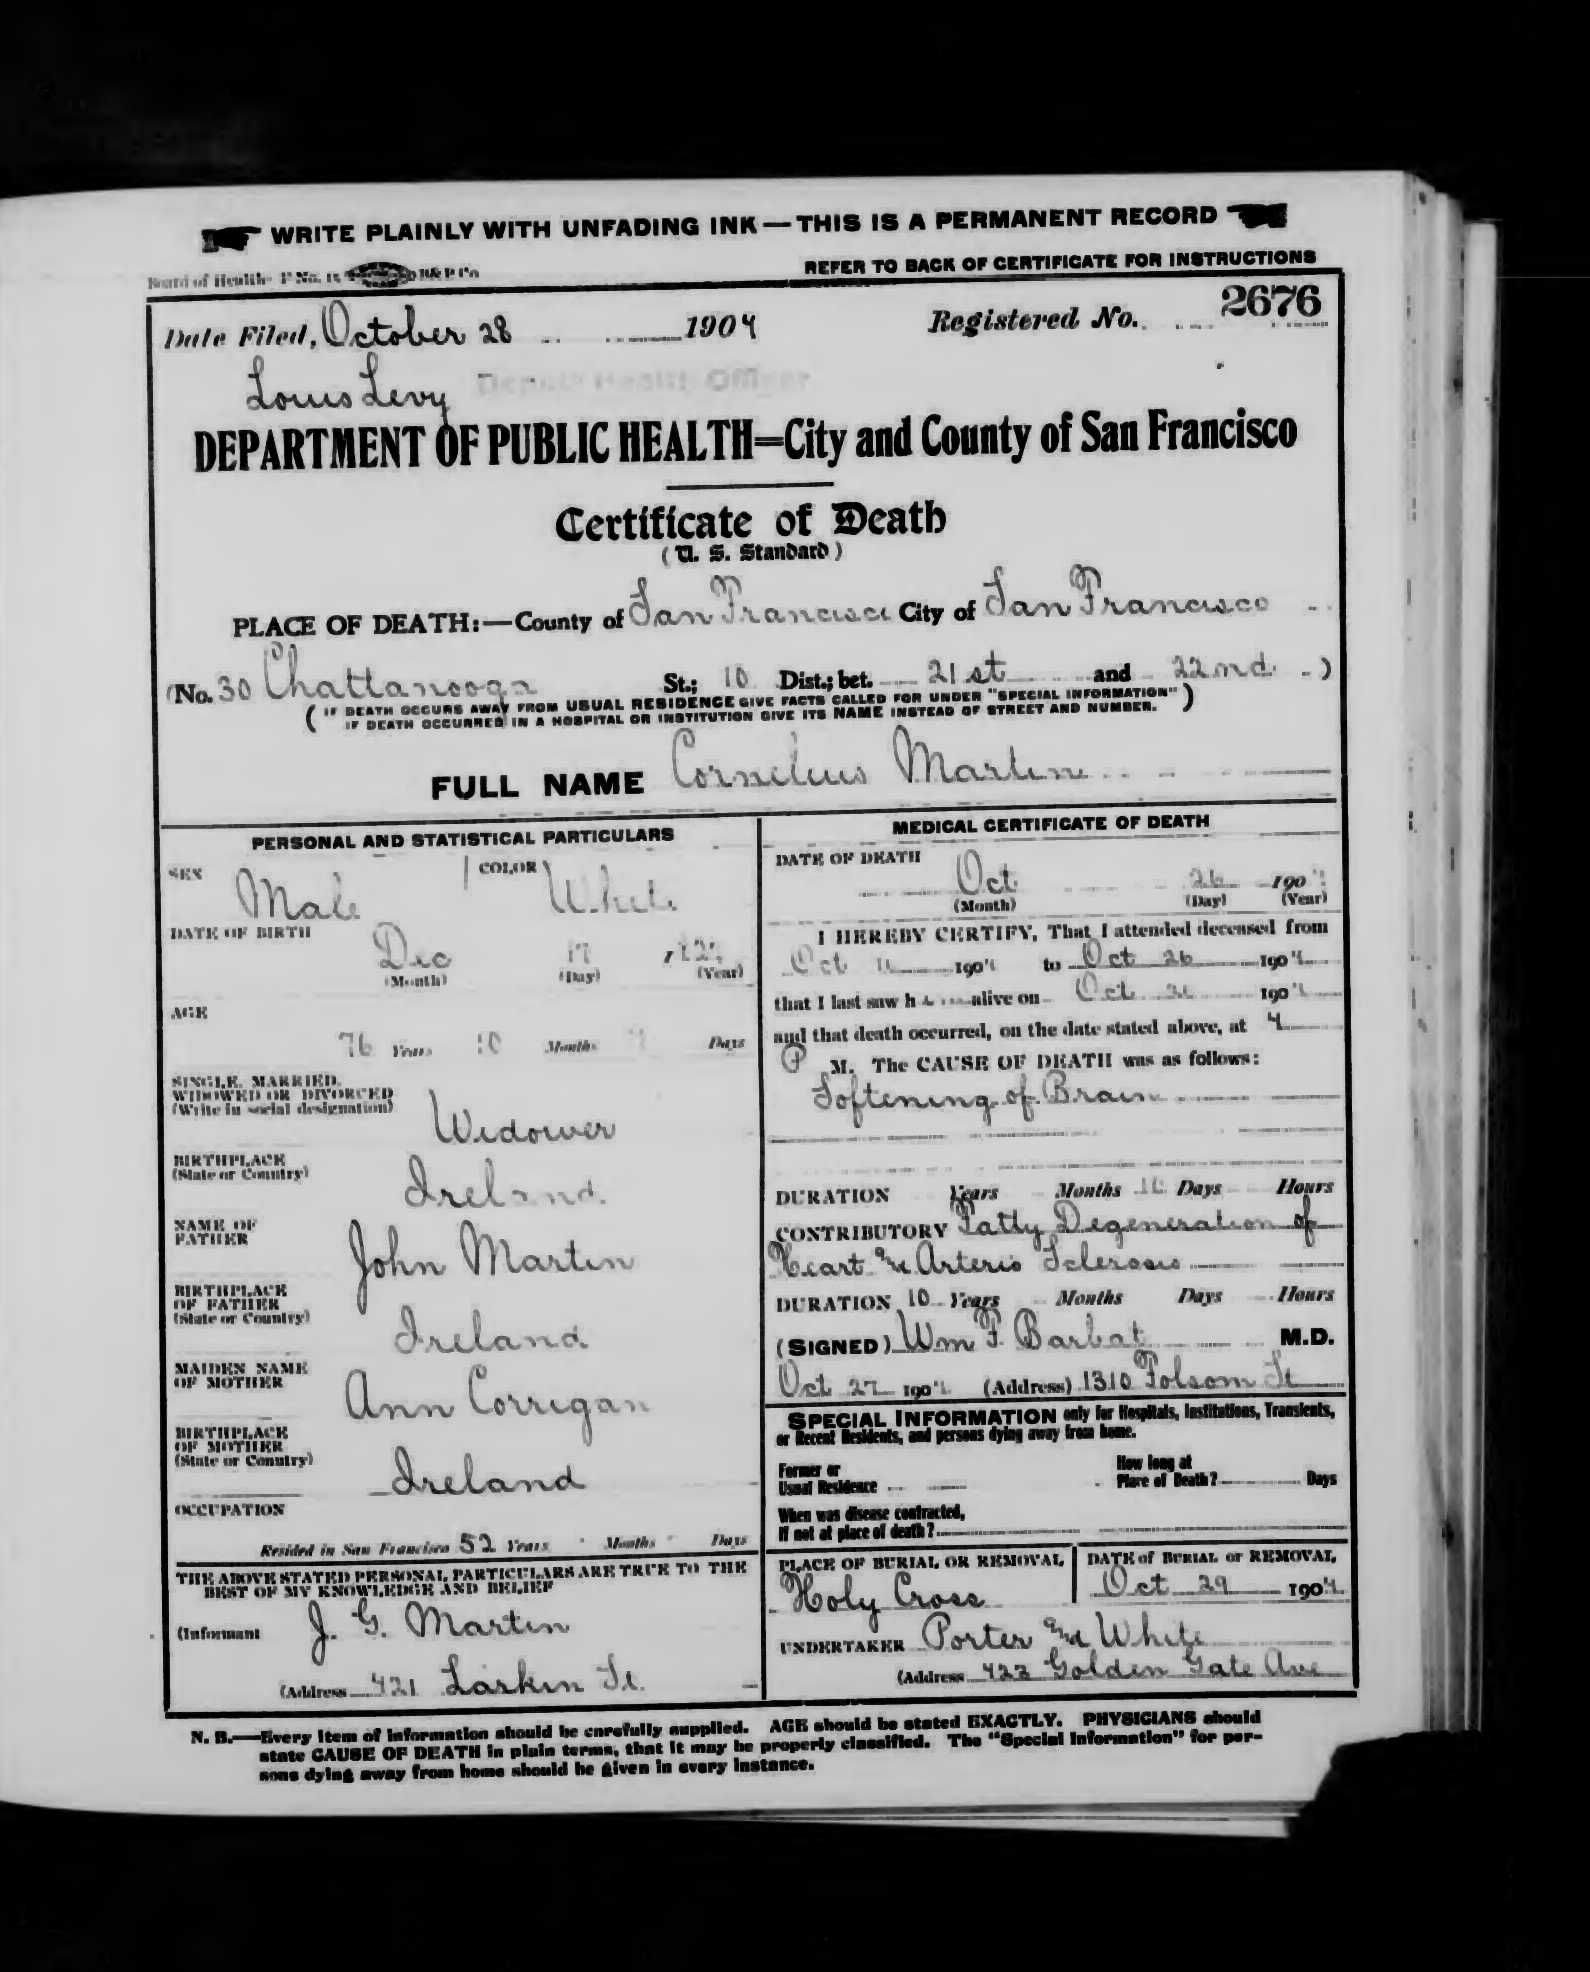 WRITE PLAINLY WITH UNFADING INK — THIS IS A PERMANENT RECORD
Board of Health B&P Co
REFER TO BACK OF CERTIFICATE FOR INSTRUCTIONS
Date Filed, October 28 1904 Registered No. 2676
Louis Levy Deputy Health Officer
DEPARTMENT OF PUBLIC HEALTH=City and County of San Francisco
Certificate of Death
(U. S. Standard)
PLACE OF DEATH:—County of San Francisco City of San Francisco
(No. 30 Chattanooga St.; 10 Dist.; bet. 21st and 22nd )
( IF DEATH OCCURS AWAY FROM USUAL RESIDENCE GIVE FACTS CALLED FOR UNDER "SPECIAL INFORMATION" )
IF DEATH OCCURRED IN A HOSPITAL OR INSTITUTION GIVE ITS NAME INSTEAD OF STREET AND NUMBER.
FULL NAME Cornelius Martin
PERSONAL AND STATISTICAL PARTICULARS
SEX Male COLOR White
DATE OF BIRTH
Dec 17
(Month) (Day) (Year)
AGE
76 Years 10 Months Days
SINGLE, MARRIED,
WIDOWED OR DIVORCED
(Write in social designation) Widower
BIRTHPLACE
(State or Country) Ireland.
NAME OF
FATHER John Martin
BIRTHPLACE
OF FATHER
(State or Country) Ireland
MAIDEN NAME
OF MOTHER Ann Corrigan
BIRTHPLACE
OF MOTHER
(State or Country) Ireland
OCCUPATION
Resided in San Francisco 52 Years Months Days
THE ABOVE STATED PERSONAL PARTICULARS ARE TRUE TO THE
BEST OF MY KNOWLEDGE AND BELIEF
(Informant J. G. Martin
(Address 421 Larkin St.
MEDICAL CERTIFICATE OF DEATH
DATE OF DEATH
Oct 26 1904
(Month) (Day) (Year)
I HEREBY CERTIFY, That I attended deceased from
Oct 1904 to Oct 26 1904
that I last saw h alive on Oct 1904
and that death occurred, on the date stated above, at 4
P M. The CAUSE OF DEATH was as follows:
Softening of Brain
DURATION Years Months Days Hours
CONTRIBUTORY Fatty Degeneration of
Heart and Arterio Sclerosis
DURATION 10 Years Months Days Hours
(SIGNED) Wm F. Barbat M.D.
Oct 27 1904 (Address) 1310 Folsom St
SPECIAL INFORMATION only for Hospitals, Institutions, Transients,
or Recent Residents, and persons dying away from home.
Former or
Usual Residence
How long at
Place of Death? Days
When was disease contracted,
If not at place of death?
PLACE OF BURIAL OR REMOVAL
Holy Cross
DATE of BURIAL or REMOVAL
Oct 29 1904
UNDERTAKER Porter and White
(Address 422 Golden Gate Ave
N. B.—Every item of information should be carefully supplied. AGE should be stated EXACTLY. PHYSICIANS should
state CAUSE OF DEATH in plain terms, that it may be properly classified. The "Special Information" for per-
sons dying away from home should be given in every instance.